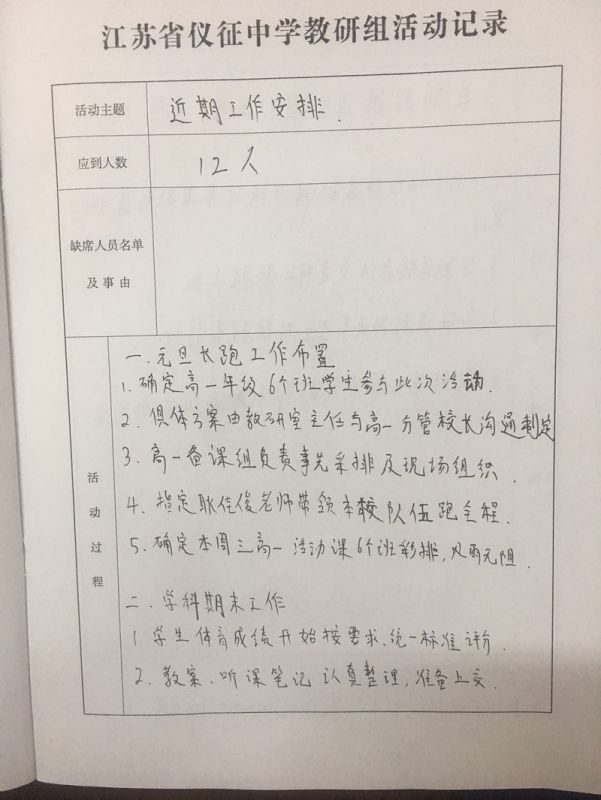 江苏省仪征中学教研组活动记录
活动主题
近期工作安排.
应到人数
12人
缺席人员名单
及事由
活动过程
一.元旦长跑工作布置
1.确定高一年级6个班学生参与此次活动.
2.具体方案由教研室主任与高一分管校长沟通制定
3.高一备课组负责事先采排及现场组织.
4.指定耿佳俊老师带领本校队伍跑全程.
5.确定本周三高一活动课6个班彩排,风雨无阻.
二.学科期末工作
1.学生体育成绩开始按要求.统一标准评价
2.教案.听课笔记认真整理,准备上交.